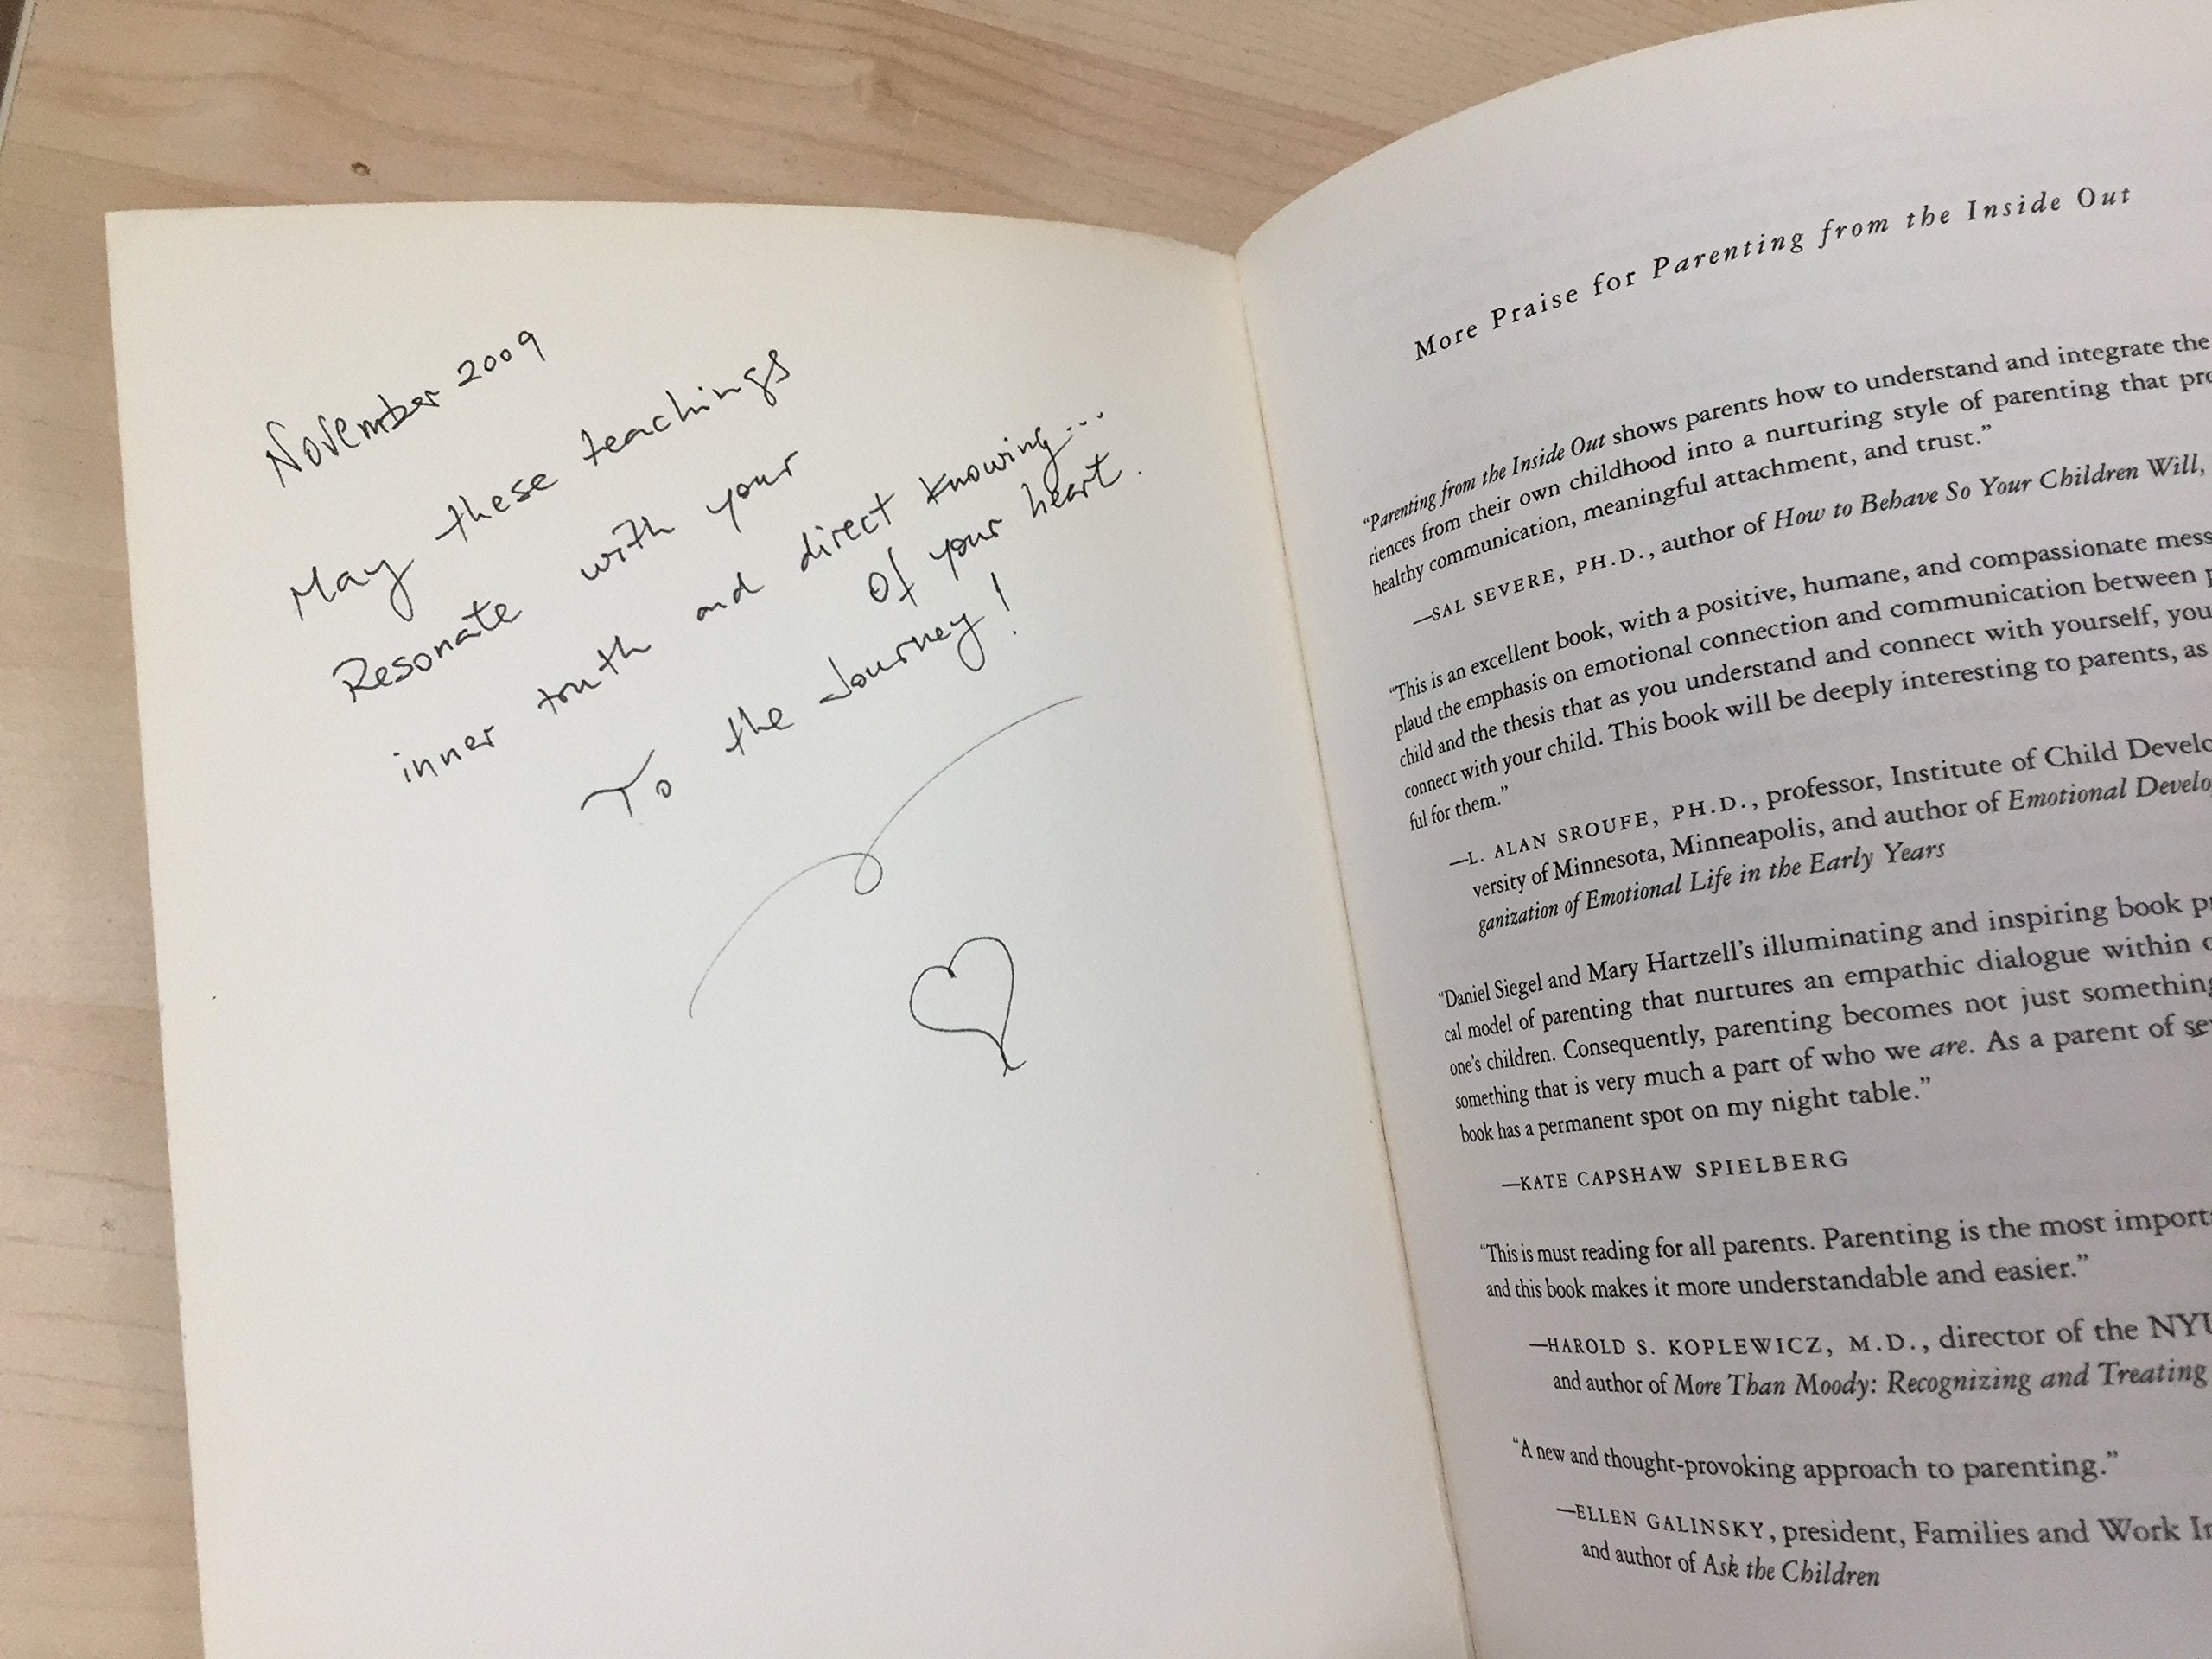 November 2009
May these teachings
Resonate with your
inner truth and direct knowing...
Of your heart.
To the Journey!
More Praise for Parenting from the Inside Out
“Parenting from the Inside Out shows parents how to understand and integrate the
riences from their own childhood into a nurturing style of parenting that pro
healthy communication, meaningful attachment, and trust.”
—SAL SEVERE, PH.D., author of How to Behave So Your Children Will,
“This is an excellent book, with a positive, humane, and compassionate mess
plaud the emphasis on emotional connection and communication between p
child and the thesis that as you understand and connect with yourself, you
connect with your child. This book will be deeply interesting to parents, as
ful for them.”
—L. ALAN SROUFE, PH.D., professor, Institute of Child Develo
versity of Minnesota, Minneapolis, and author of Emotional Develo
ganization of Emotional Life in the Early Years
“Daniel Siegel and Mary Hartzell’s illuminating and inspiring book pr
cal model of parenting that nurtures an empathic dialogue within o
one’s children. Consequently, parenting becomes not just something
something that is very much a part of who we are. As a parent of se
book has a permanent spot on my night table.”
—KATE CAPSHAW SPIELBERG
“This is must reading for all parents. Parenting is the most import
and this book makes it more understandable and easier.”
—HAROLD S. KOPLEWICZ, M.D., director of the NYU
and author of More Than Moody: Recognizing and Treating
“A new and thought-provoking approach to parenting.”
—ELLEN GALINSKY, president, Families and Work In
and author of Ask the Children